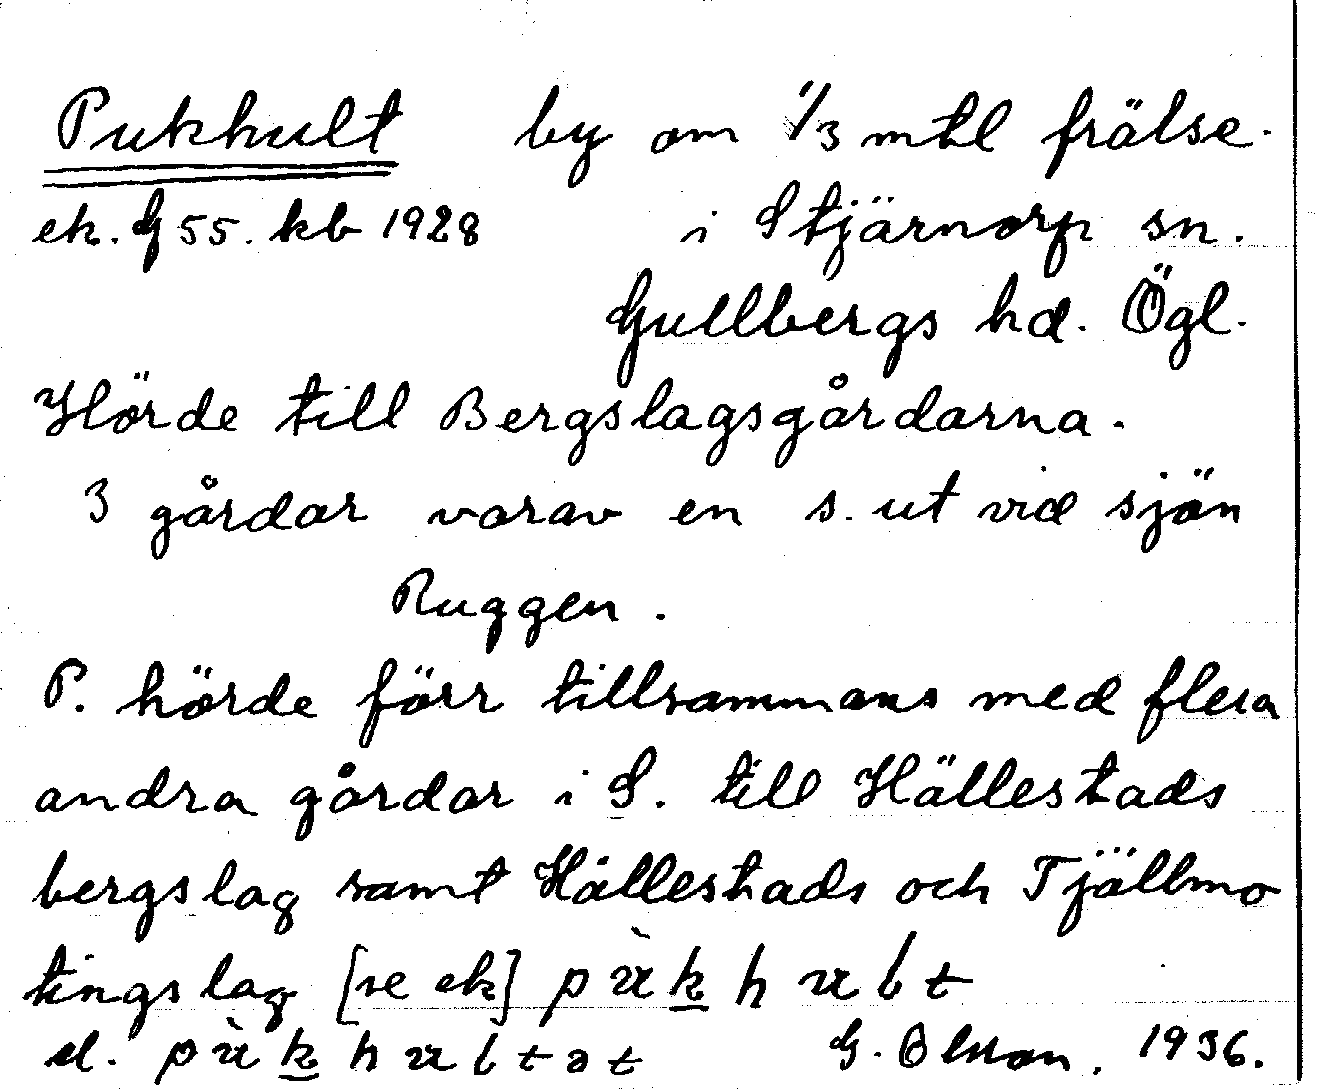 Pukhult by om 1/3 mtl frälse.
ek. G 55. kb 1928 i Stjärnorp sn.
Gullbergs hd. Ögl.
Hörde till Bergslagsgårdarna.
3 gårdar varav en s. ut vid sjön
Ruggen.
P. hörde förr tillsammans med flera
andra gårdar i S. till Hällestads
bergslag samt Hällestads och Tjällmo
tingslag [se ek] pùk hult
el. pùk hultət G. Olsson. 1936.